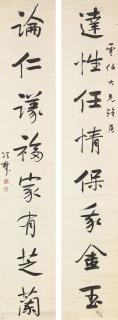 達性任情保我金玉
雲伯大兄雅屬
論仁議福家有芝蘭